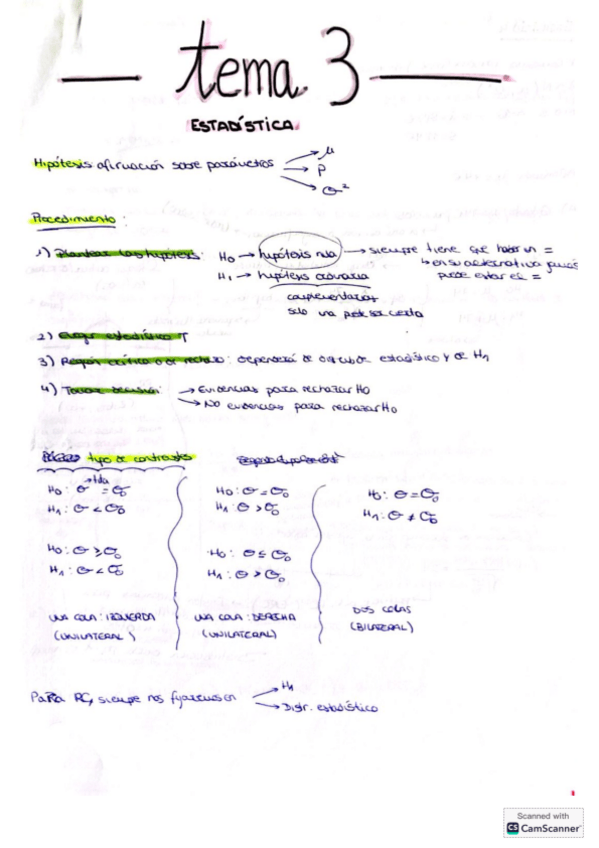 tema 3
ESTADÍSTICA
Hipótesis afirmación sobre parámetros → μ
→ P
→ σ²
Procedimiento:
1) Plantear las hipótesis: H0 → hipótesis nula → siempre tiene que haber un =
H1 → hipótesis → en su alternativa puede estar el =
complementarias
solo una puede ser cierta
2) Elegir estadístico T
3) Región crítica o de rechazo: dependerá de estadístico y de H1
4) Tomar decisión: → Evidencias para rechazar H0
→ No evidencias para rechazar H0
tipo de contrastes
H0: θ = θ0 H0: θ = θ0 H0: θ = θ0
H1: θ < θ0 H1: θ > θ0 H1: θ ≠ θ0
H0: θ ≥ θ0 H0: θ ≤ θ0
H1: θ < θ0 H1: θ > θ0
UNA COLA: IZQUIERDA UNA COLA: DERECHA DOS COLAS
(UNILATERAL) (UNILATERAL) (BILATERAL)
Para RC, siempre nos fijaremos en → H1
→ Distr. estadístico
Scanned with
CS CamScanner